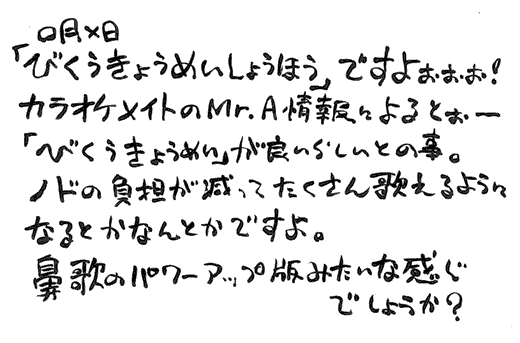 ○月×日
「びくうきょうめいしょうほう」ですよぉぉぉ!
カラオケメイトのMr.A情報によるとぉー
「びくうきょうめい」が良いらしいとの事。
ノドの負担が減ってたくさん歌えるように
なるとかなんとかですよ。
鼻歌のパワーアップ版みたいな感じ
でしょうか?